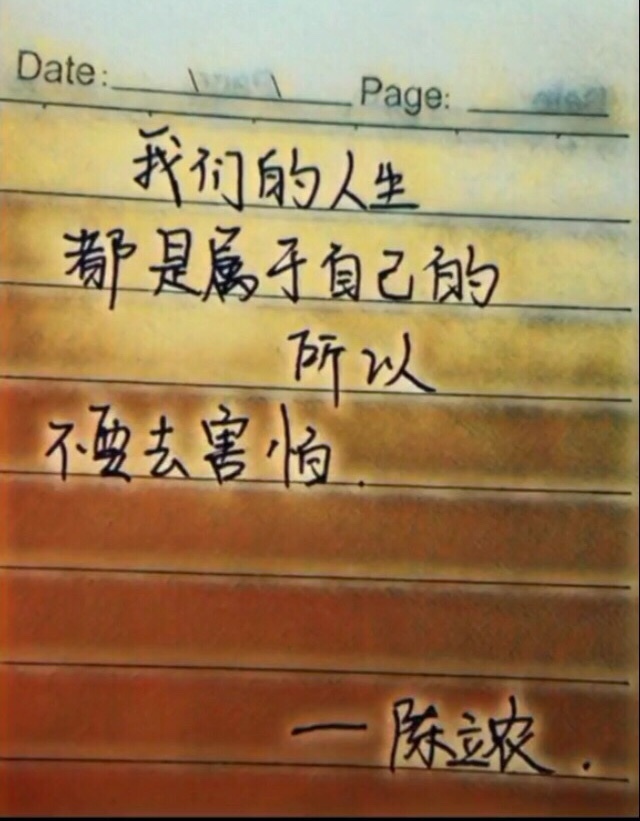 Date: Page:
我们的人生
都是属于自己的
所以
不要去害怕.
一陈立农.